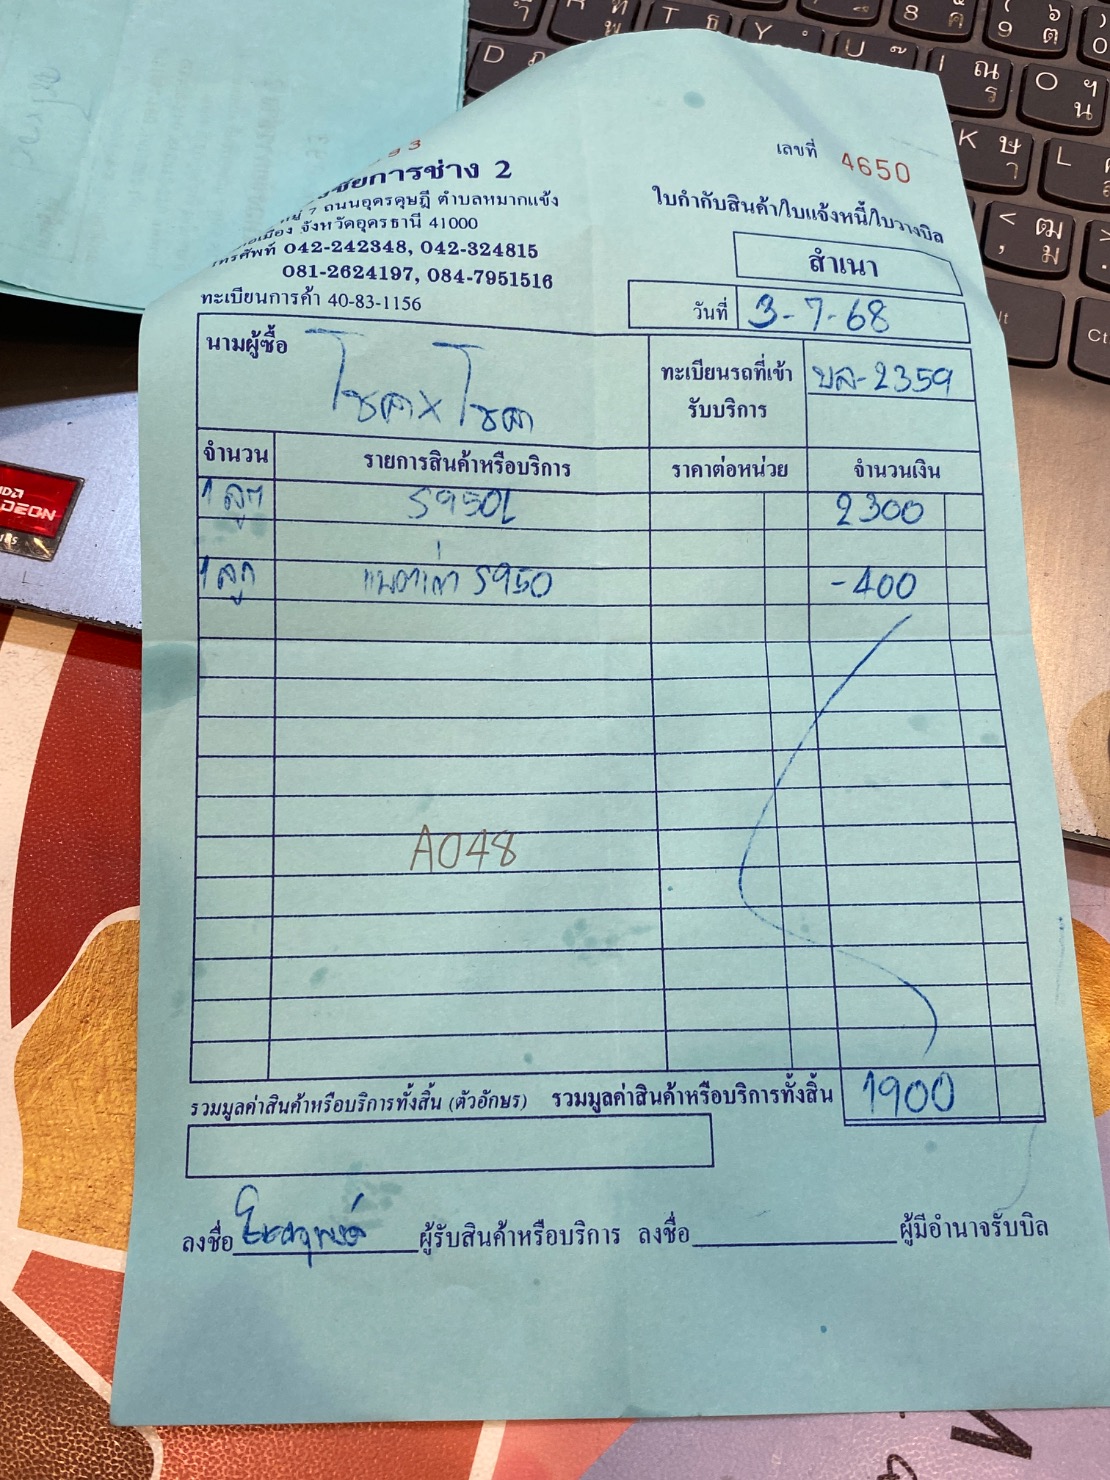 เลขที่ 4650
การช่าง 2
7 ถนนอุดรดุษฎี ตำบลหมากแข้ง
จังหวัดอุดรธานี 41000
042-242348, 042-324815
081-2624197, 084-7951516
ทะเบียนการค้า 40-83-1156
ใบกำกับสินค้า/ใบแจ้งหนี้/ใบวางบิล
สำเนา
วันที่ 3-7-68
นามผู้ซื้อ โชค x โชค
ทะเบียนรถที่เข้า
รับบริการ
บล-2359
จำนวน รายการสินค้าหรือบริการ ราคาต่อหน่วย จำนวนเงิน
1 ลูก S950L 2300
1 ลูก แบตเก่า S950 -400
A048
รวมมูลค่าสินค้าหรือบริการทั้งสิ้น (ตัวอักษร) รวมมูลค่าสินค้าหรือบริการทั้งสิ้น 1900
ลงชื่อ ผู้รับสินค้าหรือบริการ ลงชื่อ ผู้มีอำนาจรับบิล